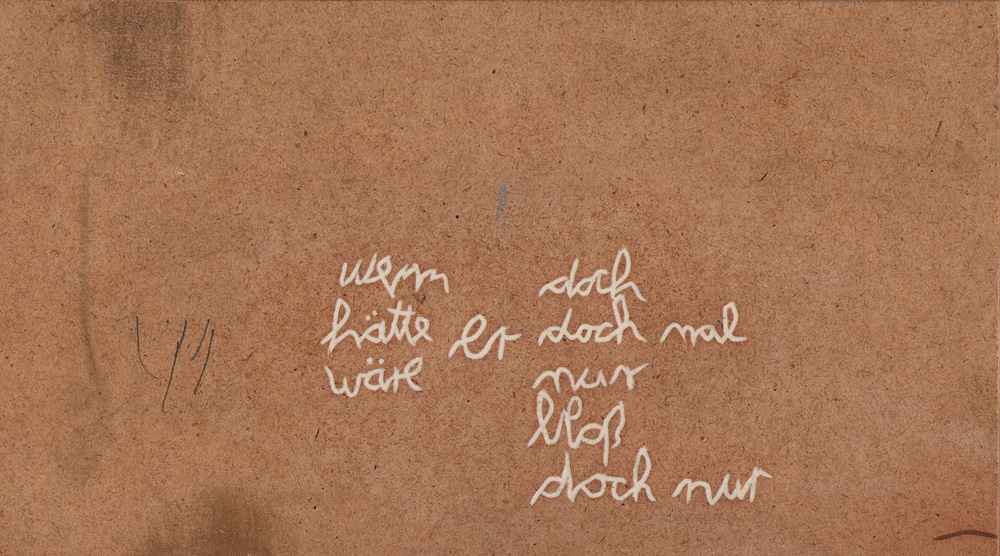 wenn doch
hätte er doch mal
wäre nur
bloß
doch nur